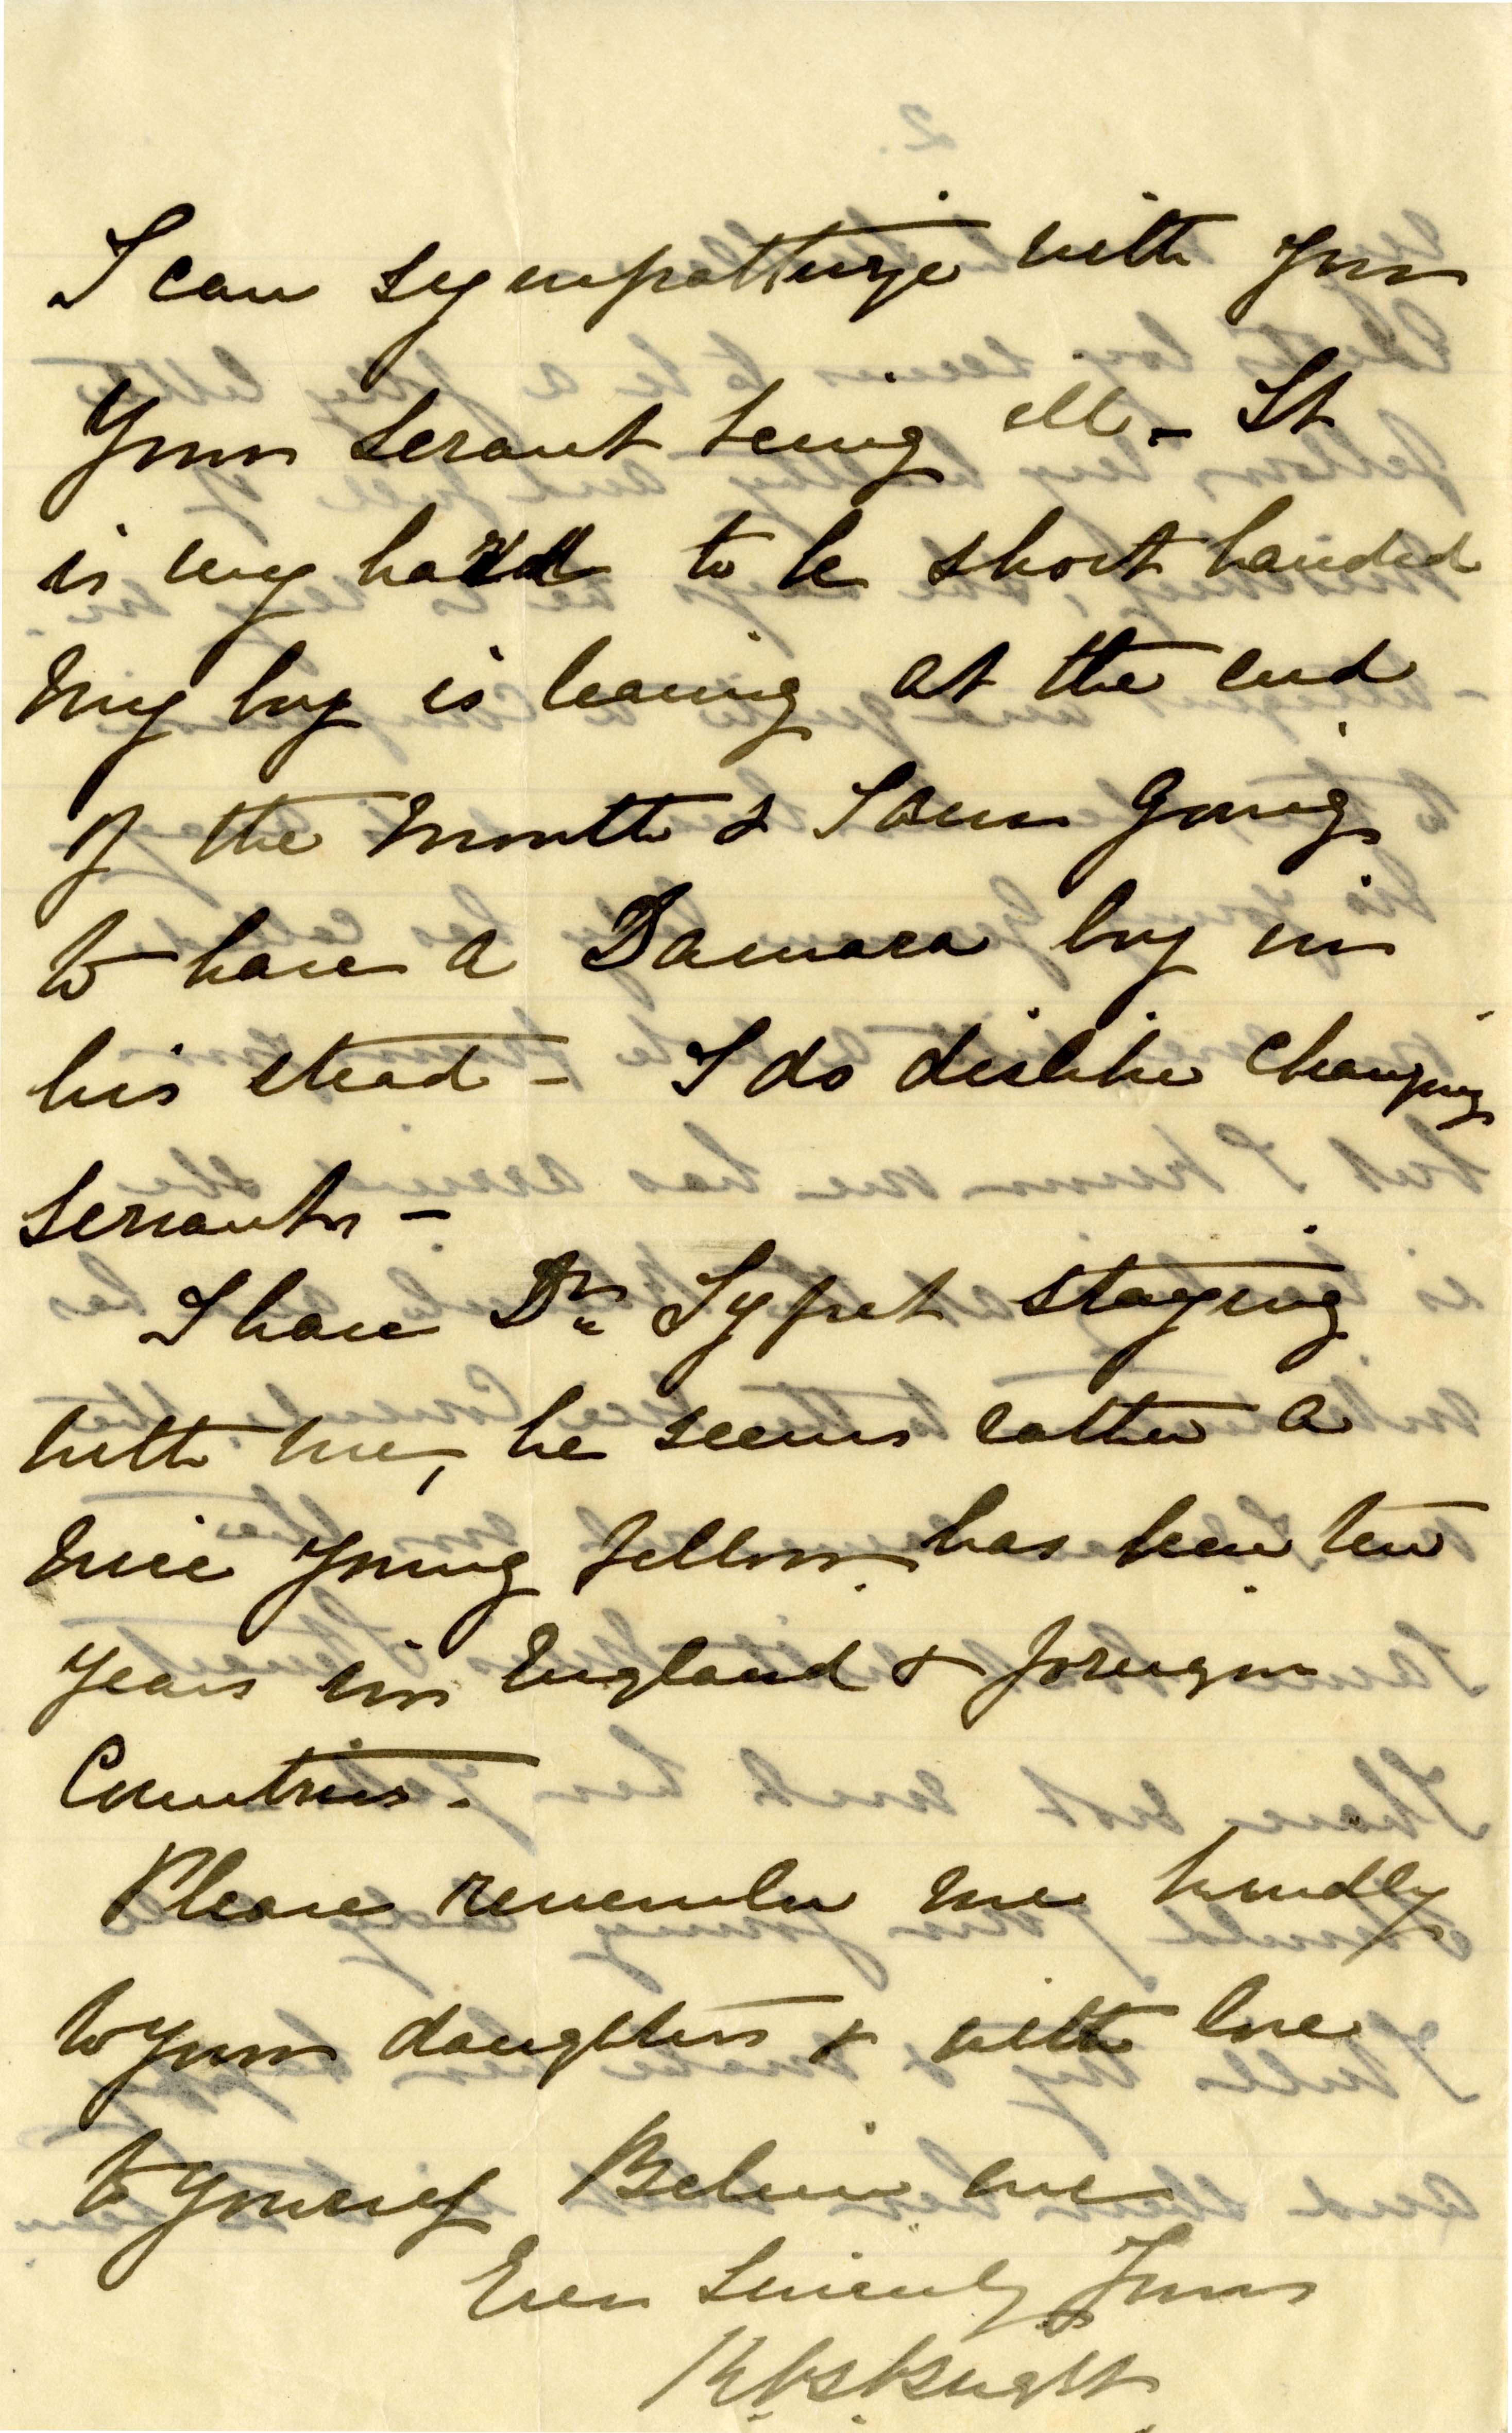 I can sympathize with you
Your servant being ill – It
is very hard to be short handed
My boy is leaving at the end
of the month & I am going
to have a Damara boy in
his stead – I do dislike changing
servants –
I have Dr Sypet staying
with me, he seems rather a
nice young fellow. has been ten
years in England & foreign
Countries.
Please remember me kindly
to your daughters & with love
to yourself Believe me
Ever Sincerely Yours